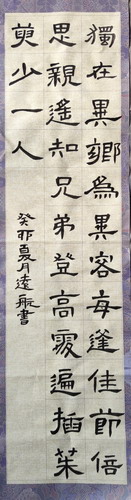 獨在異鄉為異客每逢佳節倍
思親遙知兄弟登高處遍插茱
萸少一人
癸卯夏月遠航書